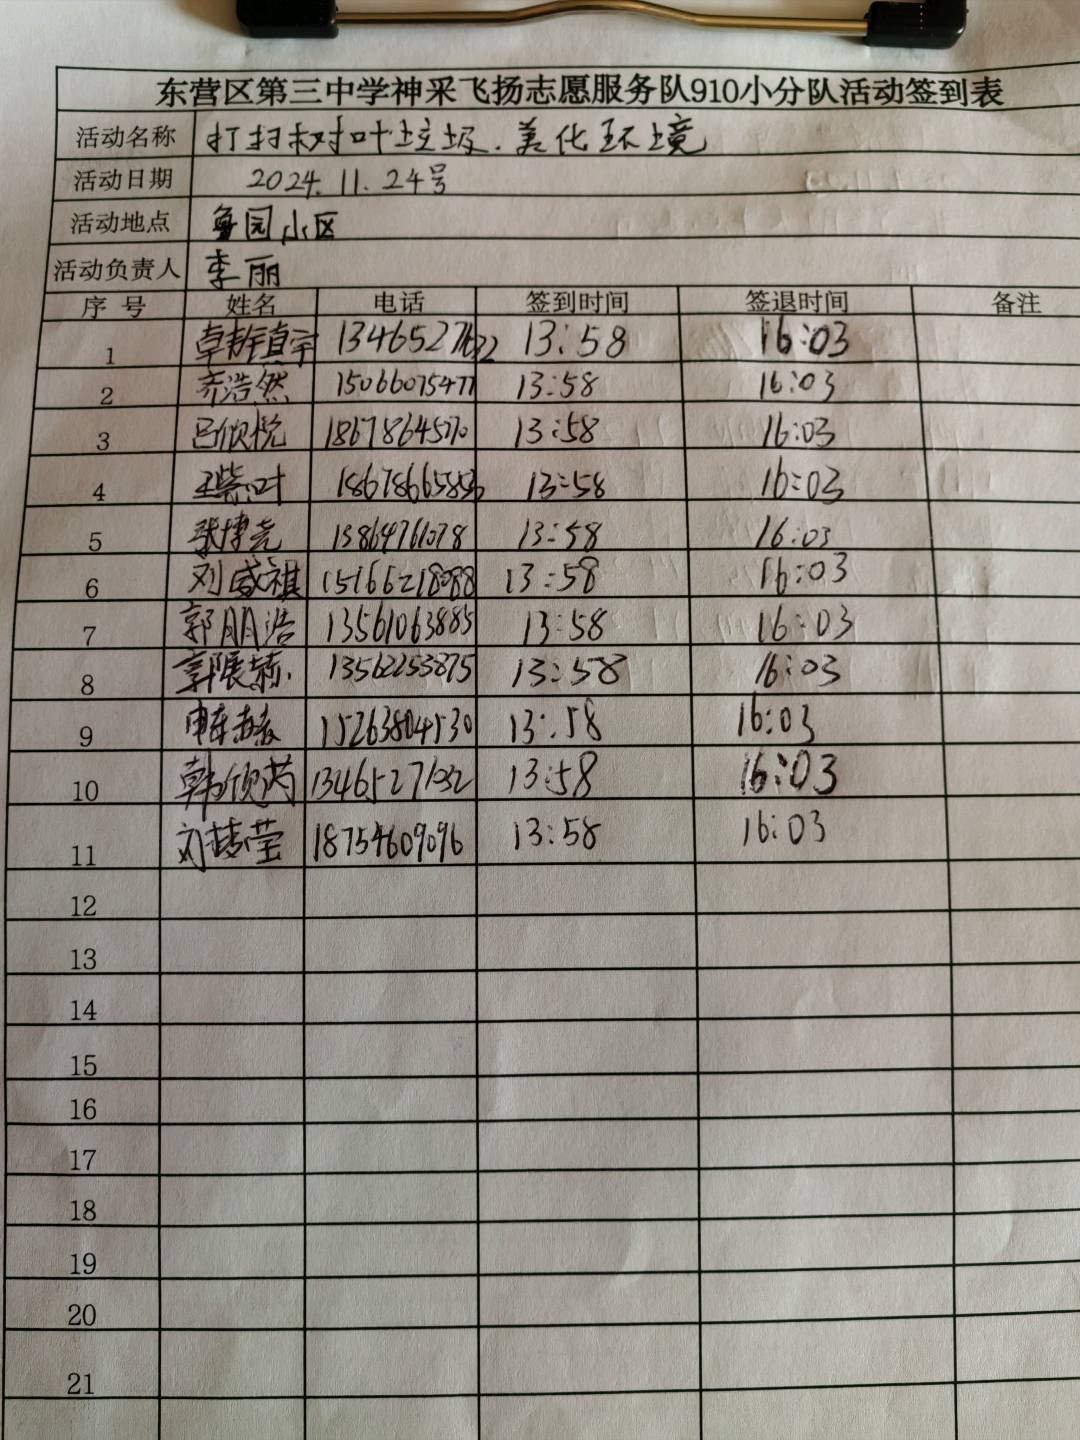 东营区第三中学神采飞扬志愿服务队910小分队活动签到表
活动名称 打扫树叶垃圾.美化环境
活动日期 2024.11.24号
活动地点 鲁园小区
活动负责人 李丽
序号 姓名 电话 签到时间 签退时间 备注
1 13:58 16:03
2 乔浩然 15066075477 13:58 16:03
3 吕欣悦 13:58 16:03
4 王紫叶 13:58 16:03
5 张博尧 13864761078 13:58 16:03
6 刘威祺 15166218088 13:58 16:03
7 郭朋浩 13561063885 13:58 16:03
8 13562253875 13:58 16:03
9 15263804530 13:58 16:03
10 韩欣芮 13:58 16:03
11 刘梦莹 18754609096 13:58 16:03
12
13
14
15
16
17
18
19
20
21